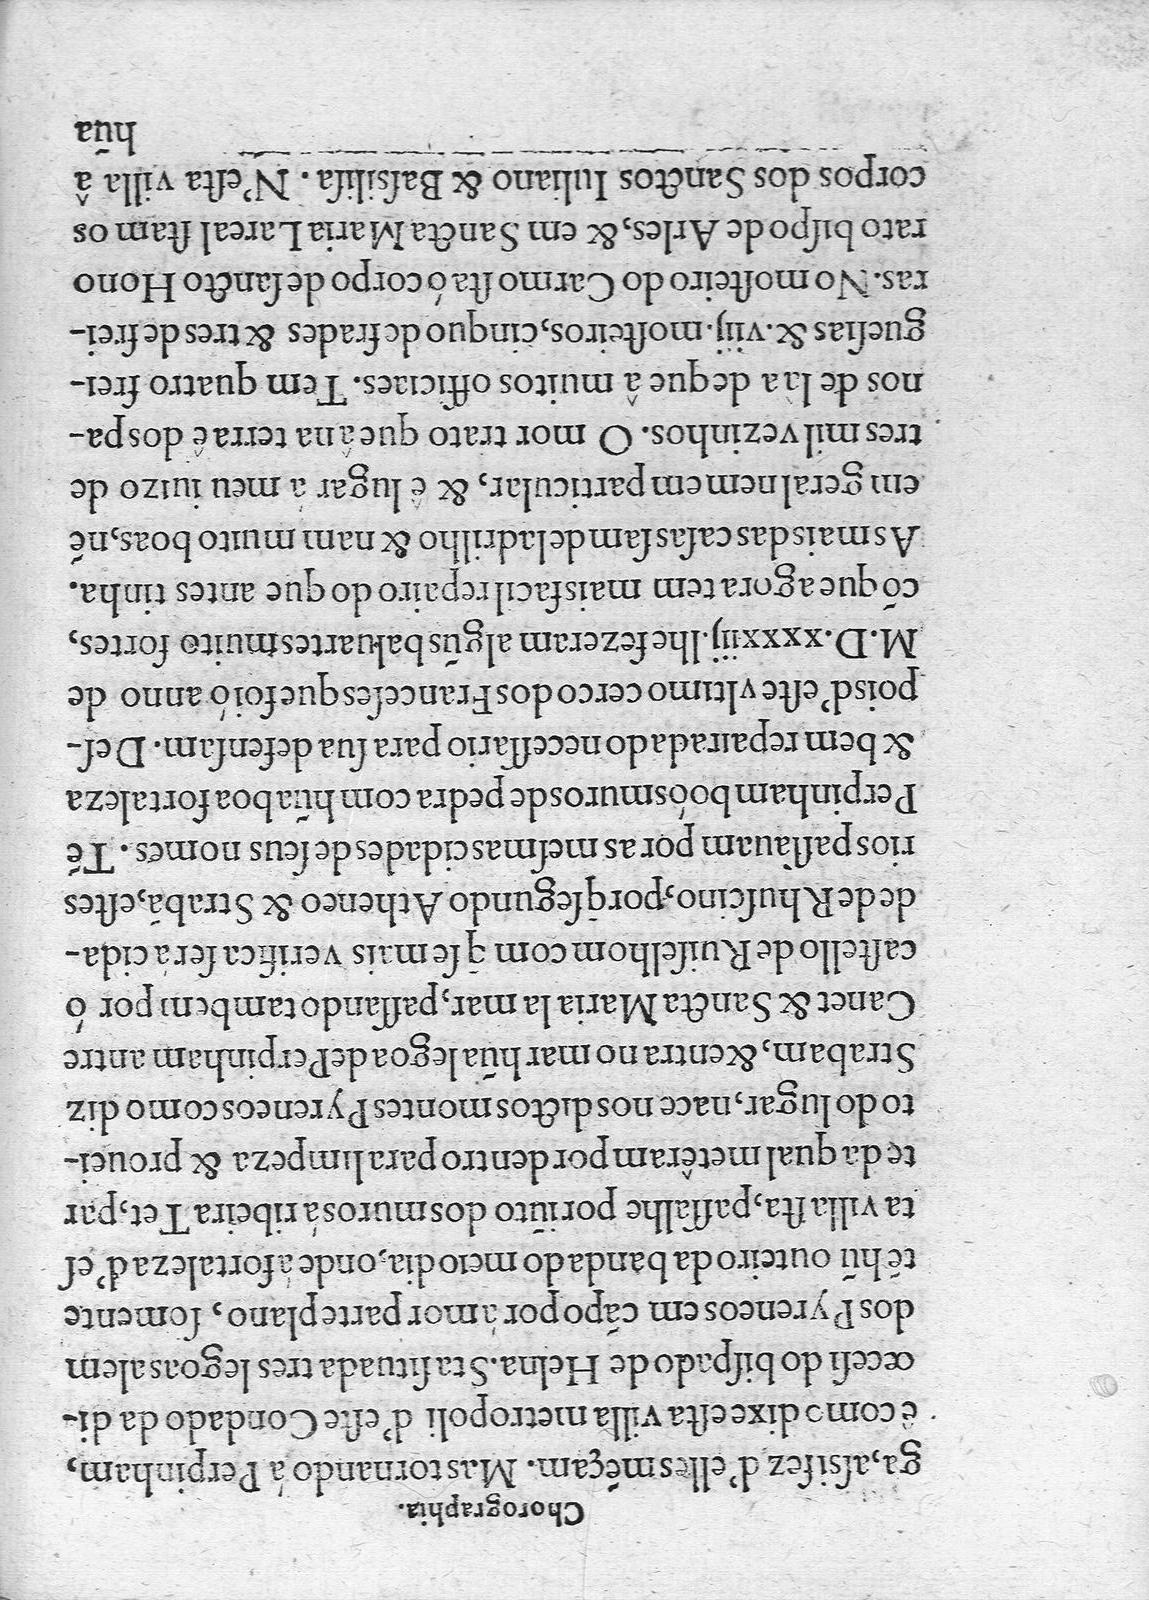 Chorographia.
ga, aſsi fez d'elles mẽçam. Mas tornando á Perpinham,
ê como dixe eſta villa metropoli d'eſte Condado da di-
œceſi do biſpado de Helna. Sta ſituada tres legoas alem
dos Pyreneos em cãpo por á mor parte plano, ſomente
tẽ hũ outeiro da banda do meio dia, onde á fortaleza d'eſ
ta villa ſta, paſſalhe por iũto dos muros á ribeira Tet, par
te da qual metêram por dentro para limpeza & prouei-
to do lugar, nace nos dictos montes Pyreneos como diz
Strabam, & entra no mar hũa legoa de Perpinham antre
Canet & Sancta Maria la mar, paſſando tambem por ó
caſtello de Ruiſelhom com q̃ ſe mais verifica ſer á cida-
de de Rhuſcino, porq̃ ſegundo Atheneo & Strabã, eſtes
rios paſſauam por as meſmas cidades de ſeus nomes. Tẽ
Perpinham boõs muros de pedra com hũa boa fortaleza
& bem repairada do neceſſario para ſua defenſam. Deſ-
pois d'eſte vltimo cerco dos Franceſes que foi ó anno de
M.D.xxxxiij. lhe fezeram algũs baluartes muito fortes,
cõ que agora tem mais facil repairo do que antes tinha.
As mais das caſas ſam de ladrilho & nam muito boas, nẽ
em geral nem em particular, & ê lugar á meu iuizo de
tres mil vezinhos. O mor trato que â na terra ê dos pa-
nos de laã de que â muitos officiaes. Tem quatro frei-
gueſias & .viij. moſteiros, cinquo de frades & tres de frei-
ras. No moſteiro do Carmo ſta ó corpo de ſancto Hono
rato biſpo de Arles, & em Sancta Maria La real ſtam os
corpos dos Sanctos Iuliano & Baſiliſſa. N'eſta villa â
hũa